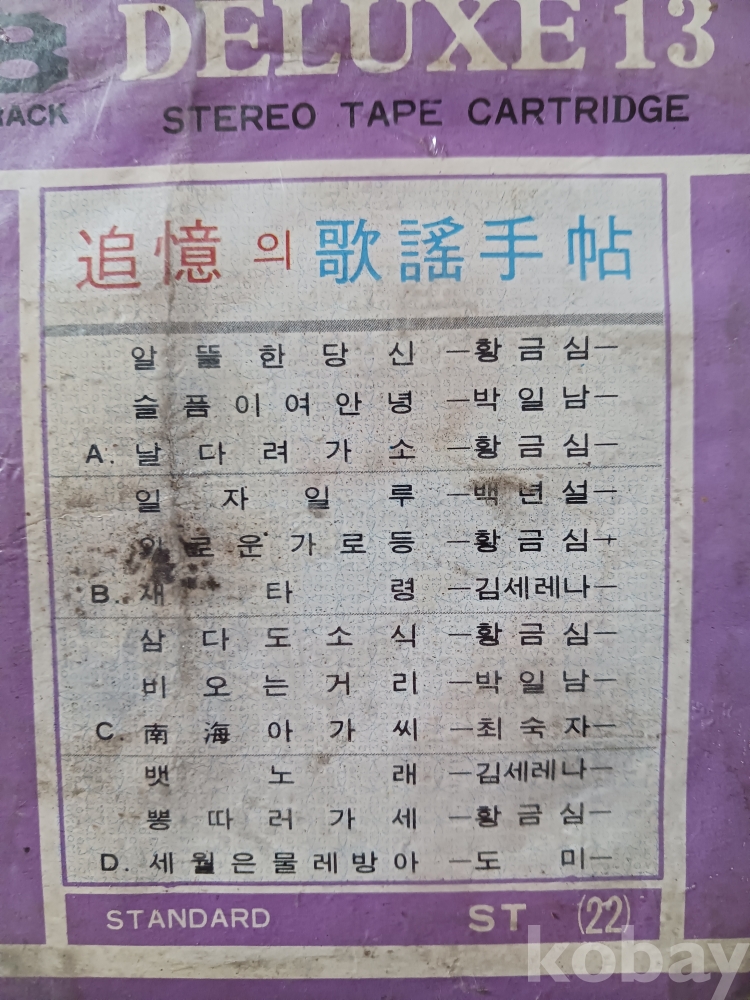 8 DELUXE 13
TRACK STEREO TAPE CARTRIDGE
追憶의 歌謠手帖
알뜰한당신 —황금심—
슬픔이여안녕 —박일남—
A. 날다려가소 —황금심—
일자일루 —백년설—
로운가로등 —황금심—
B. 새타령 —김세레나—
삼다도소식 —황금심—
비오는거리 —박일남—
C. 南海아가씨 —최숙자—
뱃노래 —김세레나—
뽕따러가세 —황금심—
D. 세월은물레방아 —도미—
STANDARD ST (22)
kobay